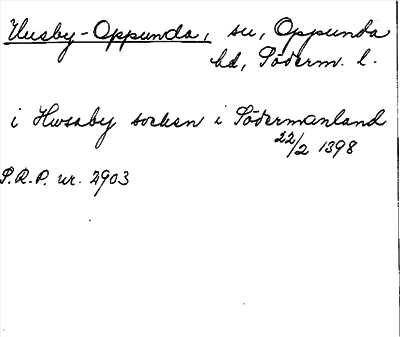 Husby-Oppunda, sn, Oppunda
hd, Söderm. l.
i Hwsaby socken i Södermanland
22/2 1398
S.R.P. nr. 2903